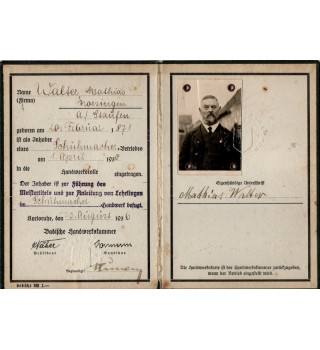 Name Walter, Mathias
(Firma)
a/ Staufen
geboren am 20. Februar 1871
ist als Inhaber
eines Schuhmacher-Betriebes
am 1. April
Handwerksrolle eingetragen.
Der Inhaber ist zur Führung des
Meistertitels und zur Anleitung von Lehrlingen
im Schuhmacher Handwerk befugt.
Karlsruhe, 3. August 1936
Badische Handwerkskammer
Näher
Präsident
Eigenhändige Unterschrift
Mathias Walter
Die Handwerkskarte ist der Handwerkskammer zurückzugeben,
wenn der Betrieb eingestellt wird.